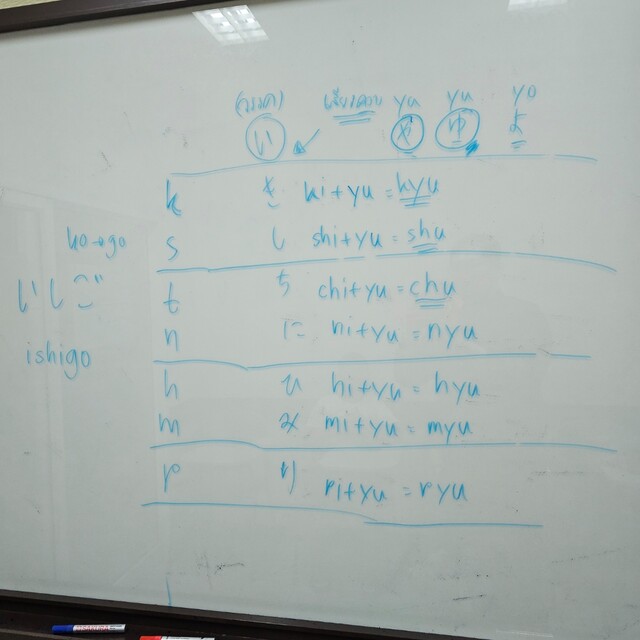 ya yu yo
い や ゆ よ
k き ki+yu = kyu
s し shi+yu = shu
t ち chi+yu = chu
n に ni+yu = nyu
h ひ hi+yu = hyu
m み mi+yu = myu
r り ri+yu = ryu
ko→go
いしご
ishigo